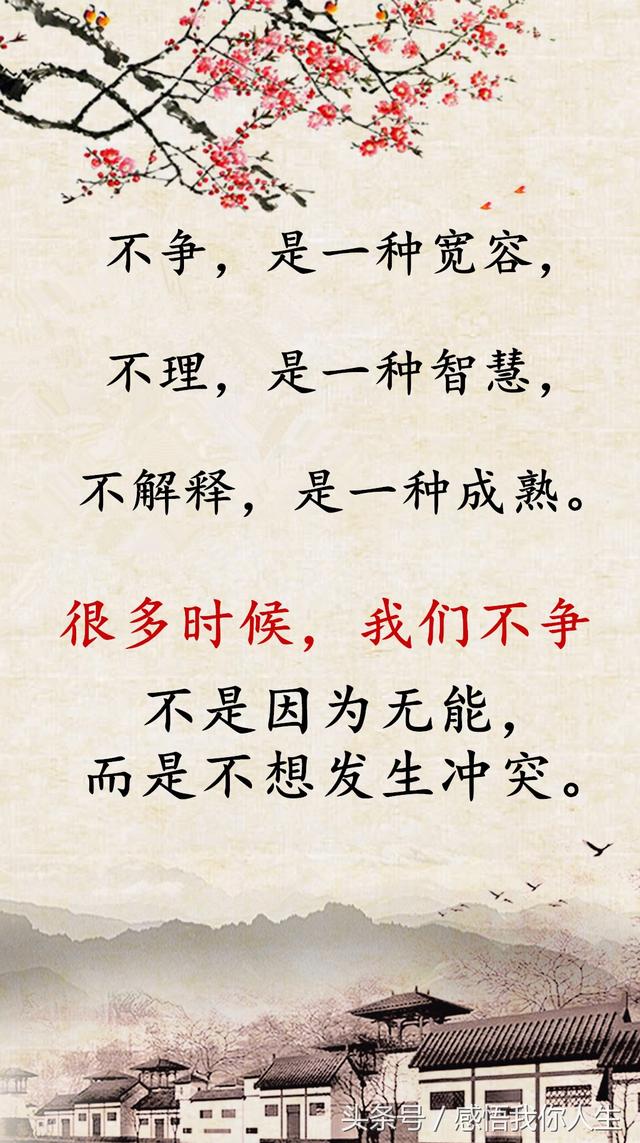 不争，是一种宽容，
不理，是一种智慧，
不解释，是一种成熟。
很多时候，我们不争
不是因为无能，
而是不想发生冲突。
头条号／感悟我你人生